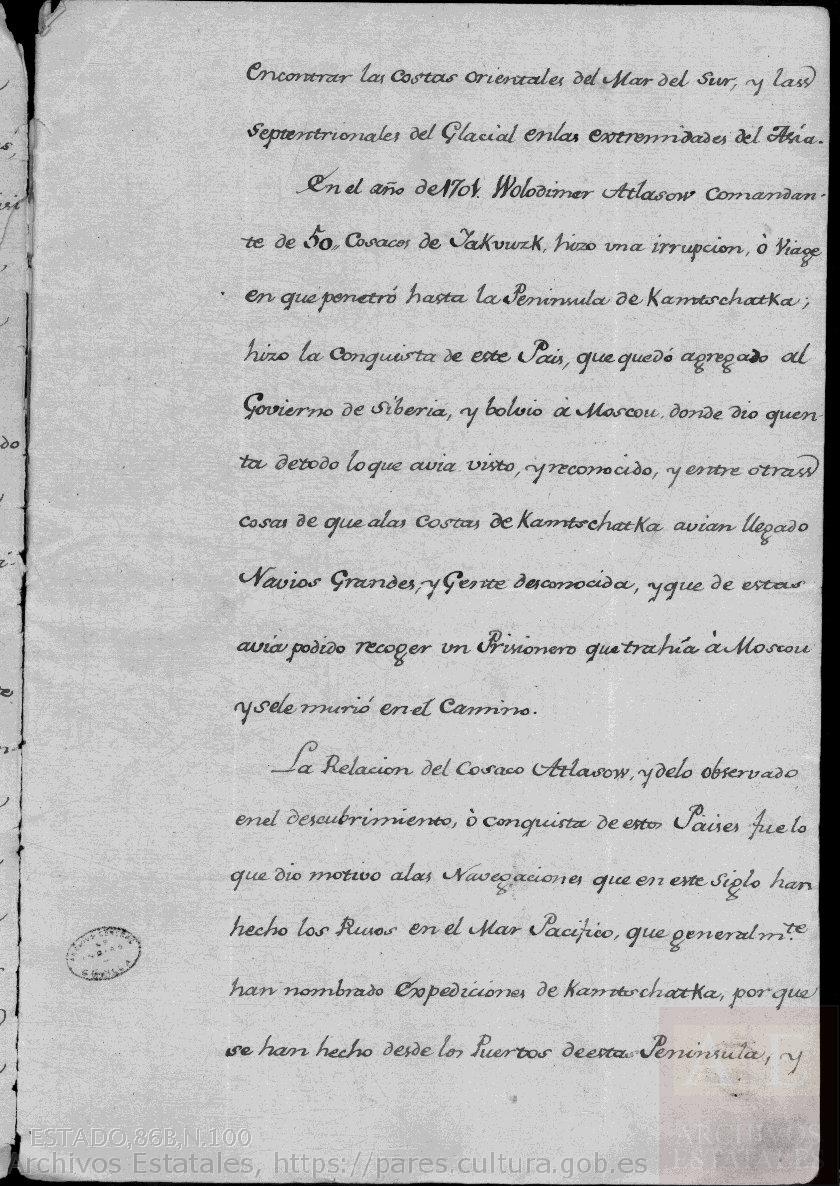 Encontrar las Costas Orientales del Mar del Sur, y las
Septentrionales del Glacial en las extremidades del Asia.
En el año de 1701. Wolodimer Atlasow Comandan-
te de 50,, Cosacos de Jakvuzk, hizo una irrupcion, ò Viage
en que penetró hasta la Peninsula de Kamtschatka;
hizo la Conquista de este Pais, que quedó agregado al
Govierno de Siberia, y bolvio à Moscou, donde dio quen-
ta de todo lo que avia visto, y reconocido, y entre otras
cosas de que a las Costas de Kamtschatka avian llegado
Navios Grandes, y Gente desconocida, y que de estas
avia podido recoger un Prisionero que trahía à Moscou
y se le murió en el Camino.
La Relacion del Cosaco Atlasow, y de lo observado
en el descubrimiento, ò conquista de estos Paises fue lo
que dio motivo a las Navegaciones que en este Siglo han
hecho los Rusos en el Mar Pacifico, que generalm.te
han nombrado Expediciones de Kamtschatka, por que
se han hecho desde los Puertos de esta Peninsula, y
SEVILLA
ESTADO,86B,N.100
Archivos Estatales, https://pares.cultura.gob.es
ARCHIVOS
ESTATALES